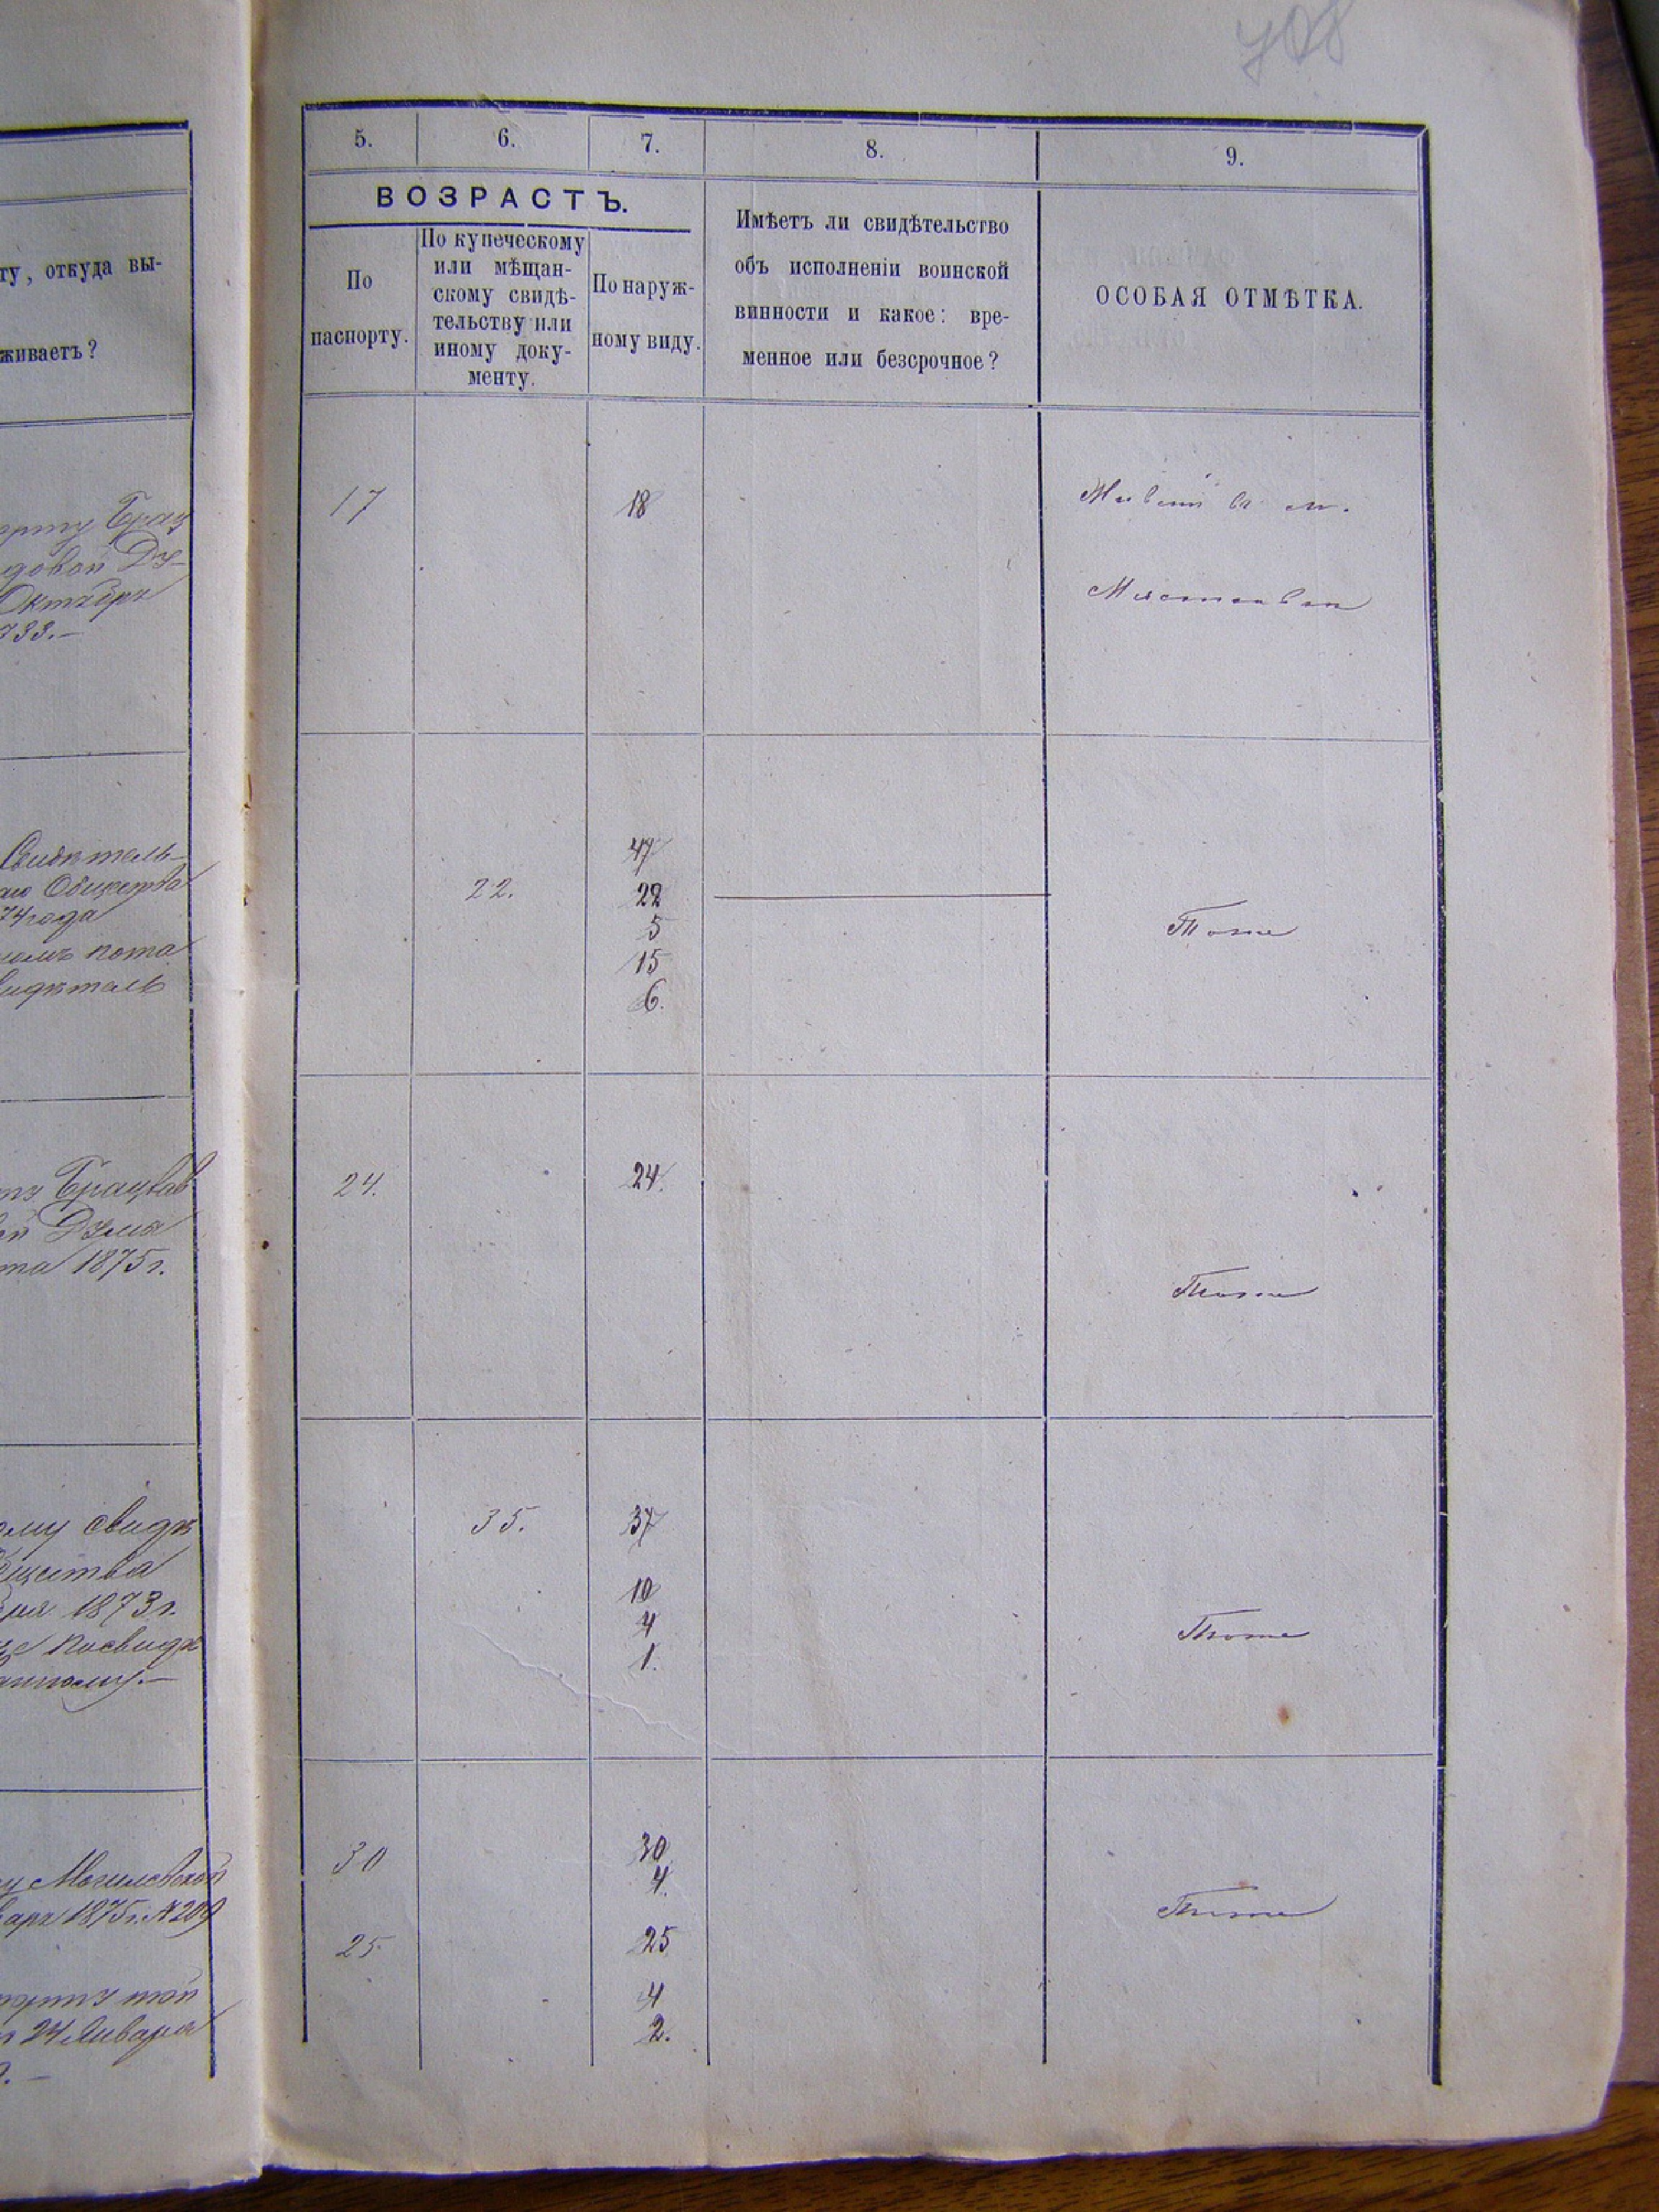 708
ту, откуда вы-
живаетъ?
Брац
довой Ду-
Октября
733.—
Свидѣтель-
Общества
74 года
пота
видѣтель
Брацлав
Дума
та 1875 г.
ому свидѣ
бщества
1873 г.
посвидѣ
Могилевской
варя 1875 г. № 209
той
24 Января
5. 6. 7. 8. 9.
ВОЗРАСТЪ.
По
паспорту.
По купеческому
или мѣщан-
скому свидѣ-
тельству или
иному доку-
менту.
По наруж-
ному виду.
Имѣетъ ли свидѣтельство
объ исполненіи воинской
винности и какое: вре-
менное или безсрочное?
ОСОБАЯ ОТМѢТКА.
17 18 въ м.
Мястковк
47
22. 22
5
15
6.
Тоже
24. 24.
Тоже
35. 37
10
4
1.
Тоже
30 30
4.
25 25
4
2.
Тоже